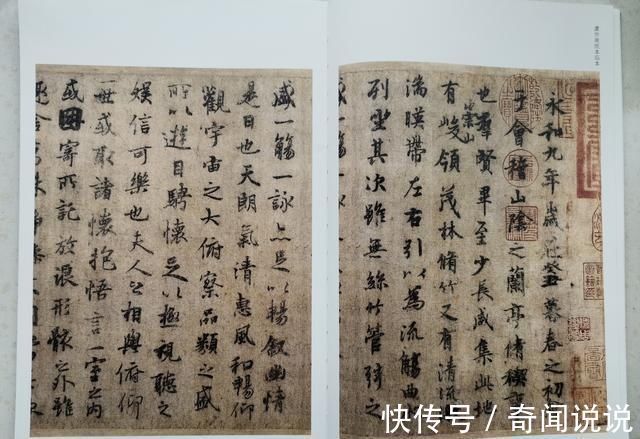 永和九年歲在癸丑暮春之初
于會稽山陰之蘭亭脩禊事
也羣賢畢至少長咸集此地
有崇山峻領茂林脩竹又有清流
湍暎帶左右引以為流觴曲
列坐其次雖無絲竹管弦之
盛一觴一詠亦足以暢敘幽情
是日也天朗氣清惠風和暢仰
觀宇宙之大俯察品類之盛
所以遊目騁懷足以極視聽之
娛信可樂也夫人之相與俯仰
一世或取諸懷抱悟言一室之內
或因寄所託放浪形骸之外雖
快传号 / 奇闻说说